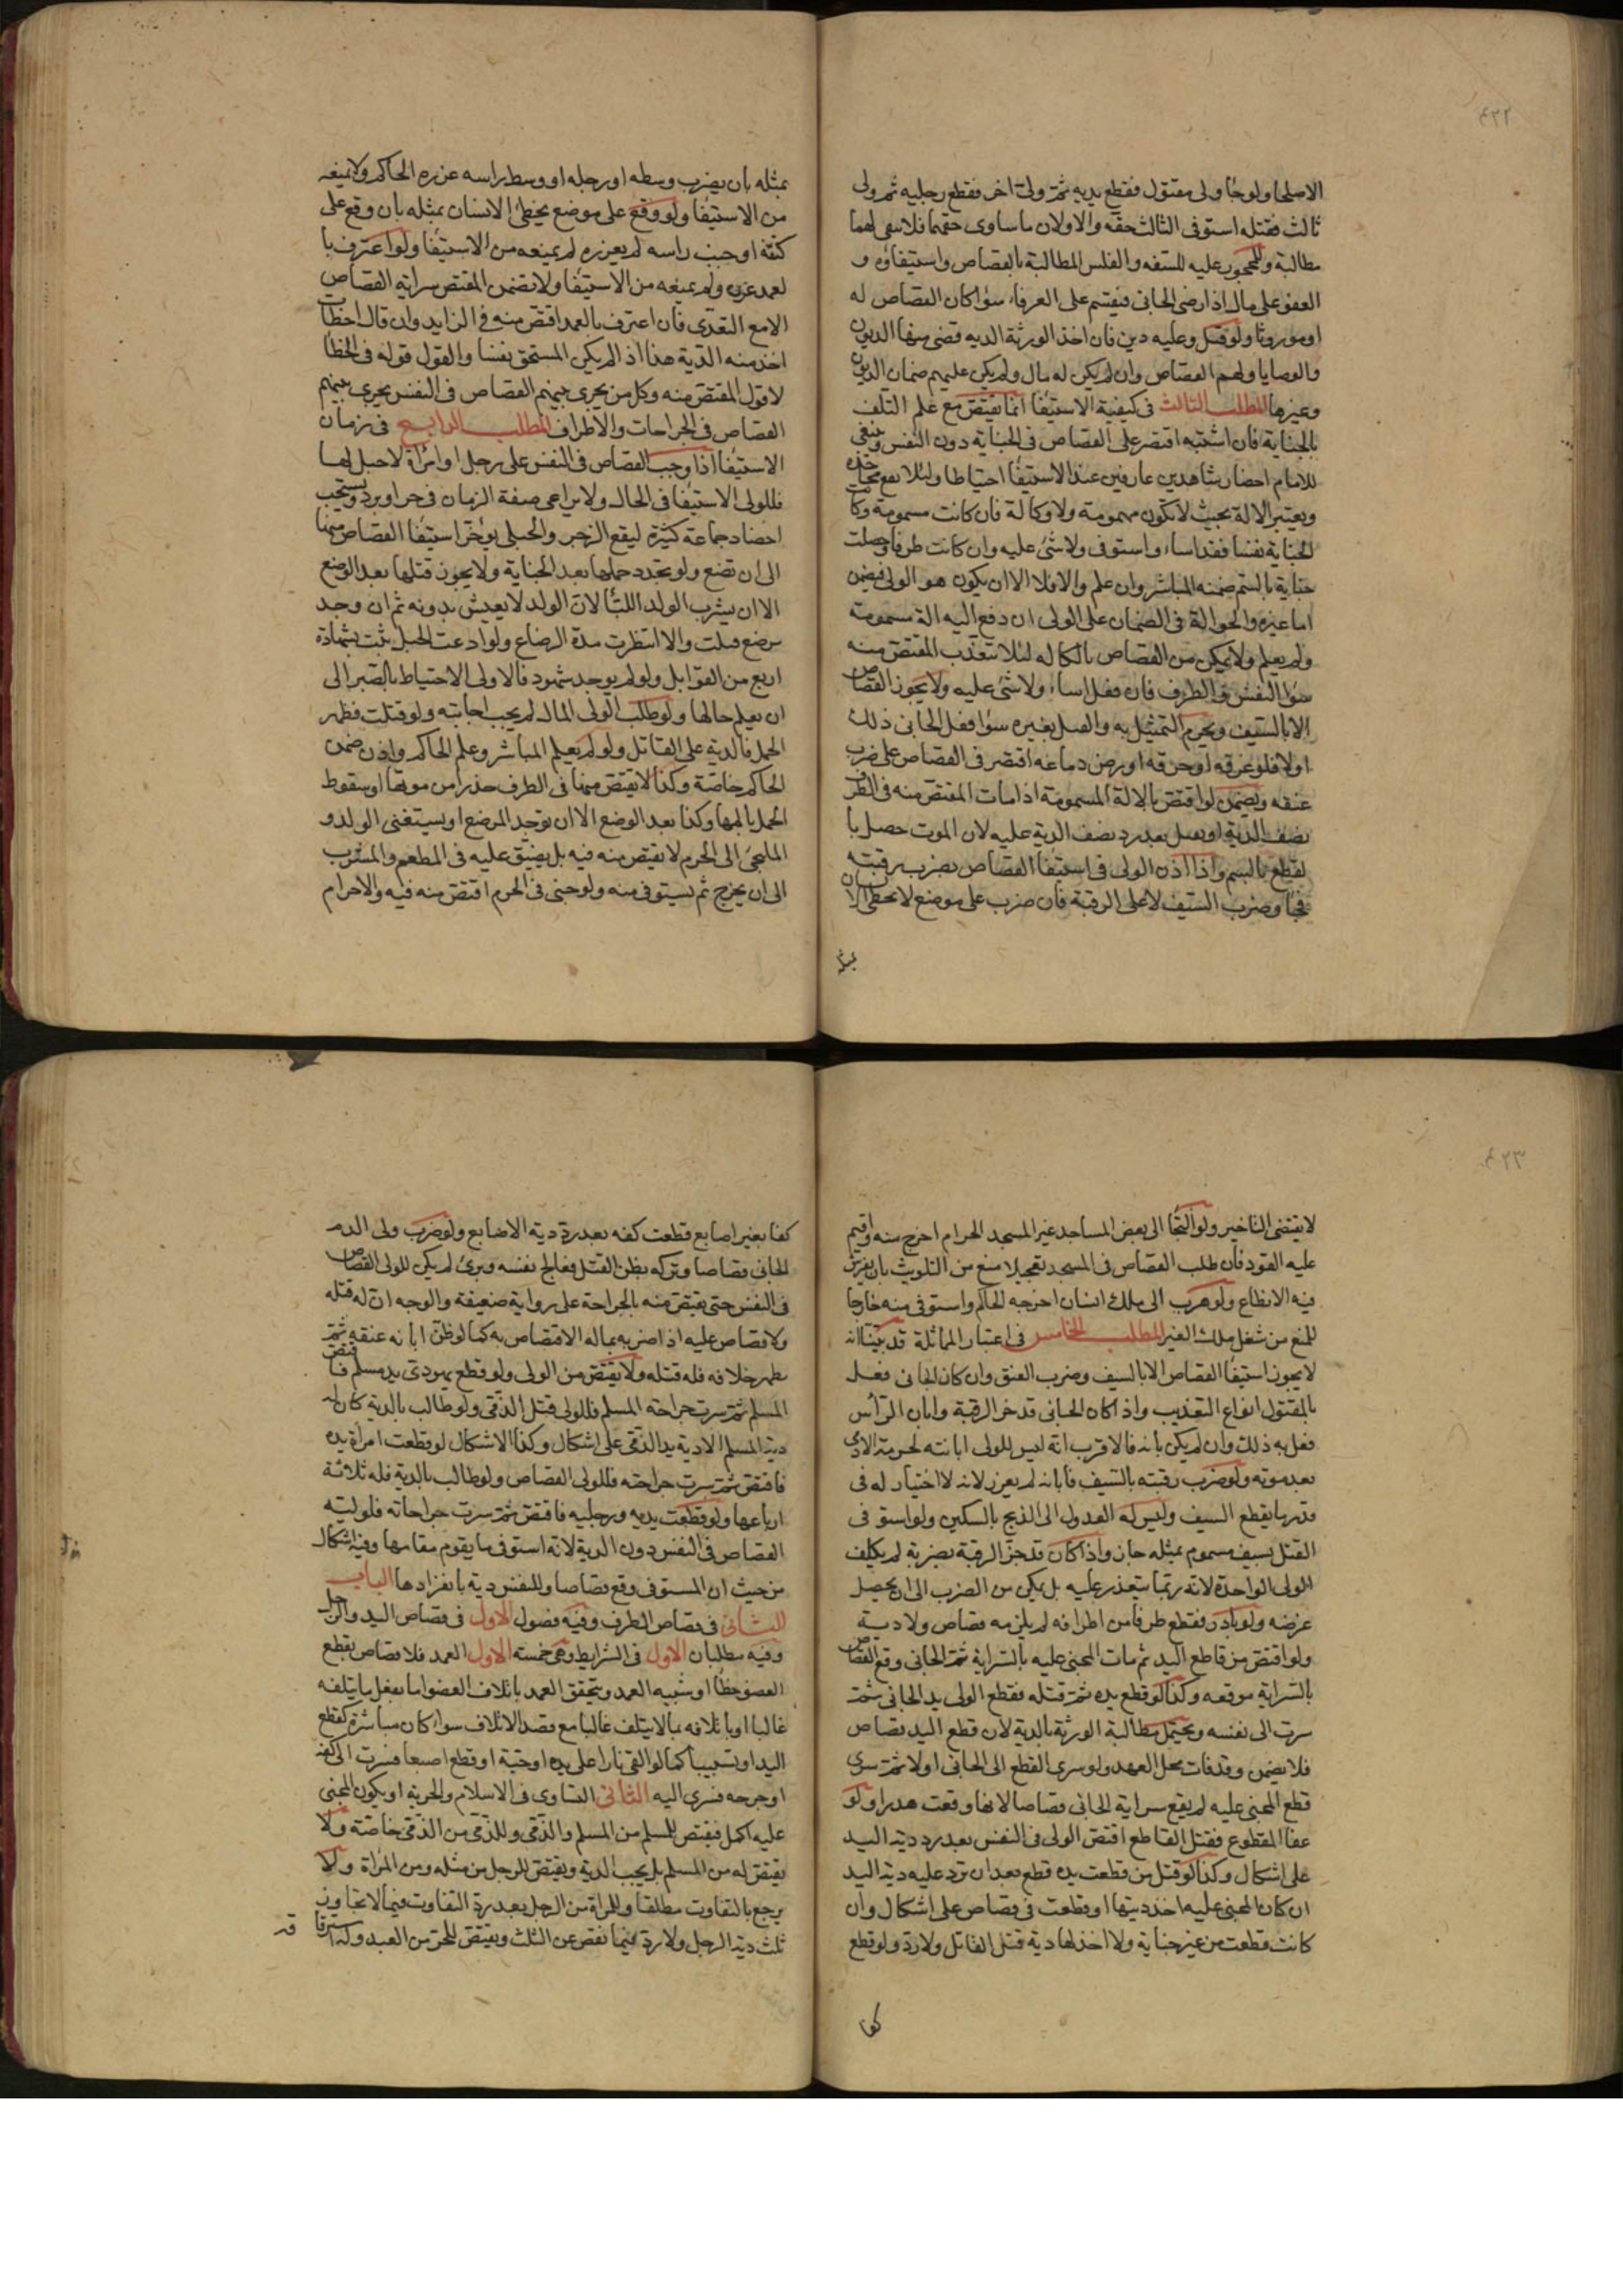 الاصلحا ولو جنا ولى مقتول فقطع يديه ثم ولى اخر فقطع رجليه ثم ولى
ثالث فقتله استوفى الثالث حقه والاولان ما ساوى حقهما فلا سعى لهما
مطالبة وللمحجور عليه للسفه والفلس المطالبة بالقصاص واستيفاؤه و
العفو على مال اذا رضى الجانى فيقسم على الغرماء سواء كان القصاص له
او موروثا ولو قتل وعليه دين فان اخذ الورثة الديه قضى منها الديون
والوصايا ولهم القصاص وان لم يكن له مال ولم يكن عليهم ضمان الديون
وغيرها المطلب الثالث فى كيفية الاستيفا انما يقتص مع علم التلف
بالجناية فان اشتبه اقتصر على القصاص فى الجناية دون النفس وينبغى
للامام احضار شاهدين عارفين عند الاستيفا احتياطا ولئلا يقع مجاحدة
ويعتبر الالة بحيث لا تكون مسمومة ولا كالة فان كانت مسمومة وكا
الجناية نفسا فقد اساء واستوفى ولا شئ عليه وان كانت طرفا وحصلت
جناية بالسم ضمنه المباشر وان علم والا فلا الا ان يكون هو الولى فيضمن
اما غيره والحوالة فى الضمان على الولى ان دفع اليه الة مسمومة
ولم يعلم ولا يمكن من القصاص بالكاله لئلا يتعذب المقتص منه
سوا النفس والطرف فان فعل اساء ولا شئ عليه ولا يجوز القصاص
الا بالسيف ويحرم التمثيل به والقتل بغيره سوا فعل الجانى ذلك
اولا فلو غرقه او حرقه او رض دماغه اقتصر فى القصاص على ضرب
عنقه ويضمن لو اقتص بالالة المسمومة اذا مات المقتص منه فى الطرف
نصف الدية او يقتل بعد رد نصف الدية عليه لان الموت حصل با
لقطع بالسم واذا اذن الولى فى استيفا القصاص بضرب رقبته
فجا وضرب السيف لا على الرقبة فان ضرب على موضع لا يخطئ الانسان
بمثله
بمثله بان يضرب وسطه او رجله او وسط راسه عزره الحاكم ولا يمنعه
من الاستيفا ولو وقع على موضع يخطئ الانسان بمثله بان وقع على
كتفه او جنب راسه لم يعزره لم يمنعه من الاستيفا ولو اعترف با
لعمد عزر ولم يمنعه من الاستيفا ولا تضمن المقتص سراية القصاص
الا مع التعدى فان اعترف بالعمد اقتص منه فى الزايد وان قال اخطات
اخذ منه الدية هذا اذا لم يكن المستحق نفسا والقول قوله فى الخطا
لا قول المقتص منه وكل من يجرى بينهم القصاص فى النفس يجرى بينهم
القصاص فى الجراحات والاطراف المطلب الرابع فى زمان
الاستيفا اذا وجب القصاص فى النفس على رجل او امراة لا حبل لها
فللولى الاستيفا فى الحال ولا يراعى صفة الزمان فى حر او برد ويستحب
احضار جماعة كثيرة ليقع الزجر والحبلى يؤخر استيفا القصاص منها
الى ان تضع ولو تجدد حملها بعد الجناية ولا يجوز قتلها بعد الوضع
الا ان يشرب الولد اللبأ لان الولد لا يعيش بدونه ثم ان وجد
مرضع قتلت والا انتظرت مدة الرضاع ولو ادعت الحبل ثبت بشهادة
اربع من القوابل ولو لم يوجد شهود فالاولى الاحتياط بالصبر الى
ان يعلم حالها ولو طلب الولى المال لم يجب اجابته ولو قتلت فظهر
الحمل فالدية على القاتل ولو لم يعلم المباشر وعلم الحاكم واذن ضمن
الحاكم خاصة وكذا لا يقتص منها فى الطرف حذرا من موتها او سقوط
الحمل بالمها وكذا بعد الوضع الا ان توجد المرضع او يستغنى الولد و
الملتجئ الى الحرم لا يقتص منه فيه بل يضيق عليه فى المطعم والمشرب
الى ان يخرج ثم يستوفى منه ولو جنى فى الحرم اقتص منه فيه والاحرام
لا يقتضى التاخير ولو التجا الى بعض المساجد غير المسجد الحرام اخرج منه واقيم
عليه القود فان طلب القصاص فى المسجد تعجيلا منع من التلويث بان يفرش
فيه الانطاع ولو هرب الى ملك انسان اخرجه الحاكم واستوفى منه خارجا
للمنع من شغل ملك الغير المطلب الخامس فى اعتبار المماثلة قد بينا انه
لا يجوز استيفا القصاص الا بالسيف وضرب العنق وان كان الجانى فعل
بالمقتول انواع التعذيب واذا كان الجانى قد حز الرقبة وابان الراس
فعل به ذلك وان لم يكن بانه فالاقرب انه ليس للولى ابانته لحرمة الادمى
بعد موته ولو ضرب رقبته بالسيف فابانه لم يعزر لانه لا اختيار له فى
قدر ما يقطع السيف وليس له العدول الى الذبح بالسكين ولو استوفى
القتل بسيف مسموم بمثله جاز واذا كان قد حز الرقبة بضربة لم يكلف
الولى الواحدة لانه ربما يتعذر عليه بل يمكن من الضرب الى ان يحصل
غرضه ولو بادر فقطع طرفا من اطرافه لم يلزمه قصاص ولا دية
ولو اقتص من قاطع اليد ثم مات المجنى عليه بالسراية ثم الجانى وقع القصاص
بالسراية موقعه وكذا لو قطع يده ثم قتله فقطع الولى يد الجانى ثم
سرت الى نفسه ويحتمل مطالبة الورثة بالدية لان قطع اليد قصاص
فلا يضمن وقد فات محل العمد ولو سرى القطع الى الجانى اولا ثم سرى
قطع المجنى عليه لم يقع سراية الجانى قصاصا لانها وقعت هدرا ولو
عفا المقطوع فقتل القاطع اقتص الولى فى النفس بعد رد دية اليد
على اشكال وكذا لو قتل من قطعت يده قطع بعد ان ترد عليه دية اليد
ان كان المجنى عليه اخذ ديتها او قطعت فى قصاص على اشكال وان
كانت قطعت من غير جناية ولا اخذ لها دية قتل القاتل ولا رد ولو قطع
كفا
كفا بغير اصابع قطعت كفه بعد رد دية الاصابع ولو ضرب ولى الدم
الجانى قصاصا وتركه بظن القتل فعالج نفسه وبرئ لم يكن للولى القصاص
فى النفس حتى يقتص منه بالجراحة على رواية ضعيفة والوجه ان له قتله
ولا قصاص عليه اذا ضربه بماله الاقتصاص به كما لو ظن ابانه عنقه ثم
ظهر خلافه فله قتله ولا يقتص من الولى ولو قطع يهودى يد مسلم فاقتص
المسلم ثم سرت جراحة المسلم فللولى قتل الذمى ولو طالب بالدية كان له
دية المسلم الا دية يد الذمى على اشكال وكذا الاشكال لو قطعت امراة يده
فاقتص ثم سرت جراحته فللولى القصاص ولو طالب بالدية فله ثلاثة
ارباعها ولو قطعت يديه ورجليه فاقتص ثم سرت جراحاته فلوليه
القصاص فى النفس دون الدية لانه استوفى ما يقوم مقامها وفيه اشكال
من حيث ان المستوفى وقع قصاصا وللنفس دية بانفرادها الباب
الثانى فى قصاص الطرف وفيه فصول الاول فى قصاص اليد والرجل
وفيه مطلبان الاول فى الشرايط وهى خمسة الاول العمد فلا قصاص بقطع
العضو خطا او شبيه العمد ويتحقق العمد باتلاف العضو اما بفعل ما يتلفه
غالبا او باتلافه بما لا يتلف غالبا مع قصد الاتلاف سوا كان مباشرة كقطع
اليد او تسبيبا كما لو القى نارا على يده او حية او قطع اصبعا فسرت الى كفه
او جرحه فسرى اليه الثانى التساوى فى الاسلام والحرية او يكون المجنى
عليه اكمل فيقتص للمسلم من المسلم والذمى وللذمى من الذمى خاصة ولا
يقتص له من المسلم بل يجب الدية ويقتص للرجل من مثله ومن المراة ولا
يرجع بالتفاوت مطلقا وللمراة من الرجل بعد رد التفاوت فيما لا تجاوز
ثلث دية الرجل ولا رد فيما نقص عن الثلث ويقتص للحر من العبد وله استرقا قه